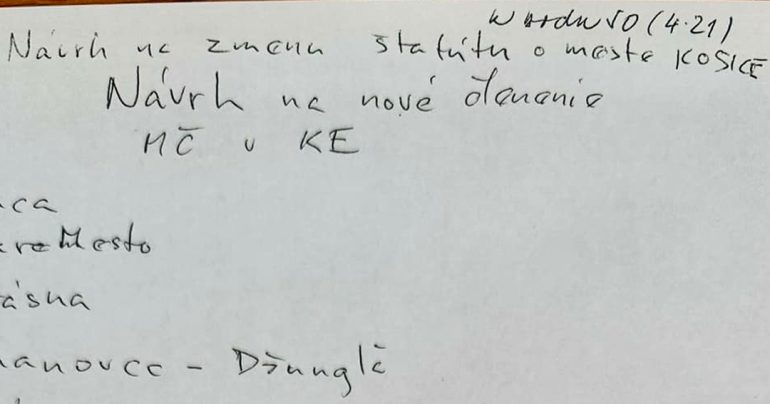 (4.21)
Návrh na zmenu štatútu o meste KOŠICE
Návrh na nové členenie
MČ v KE
ca
re Mesto
ásna
anovce - Džungľa